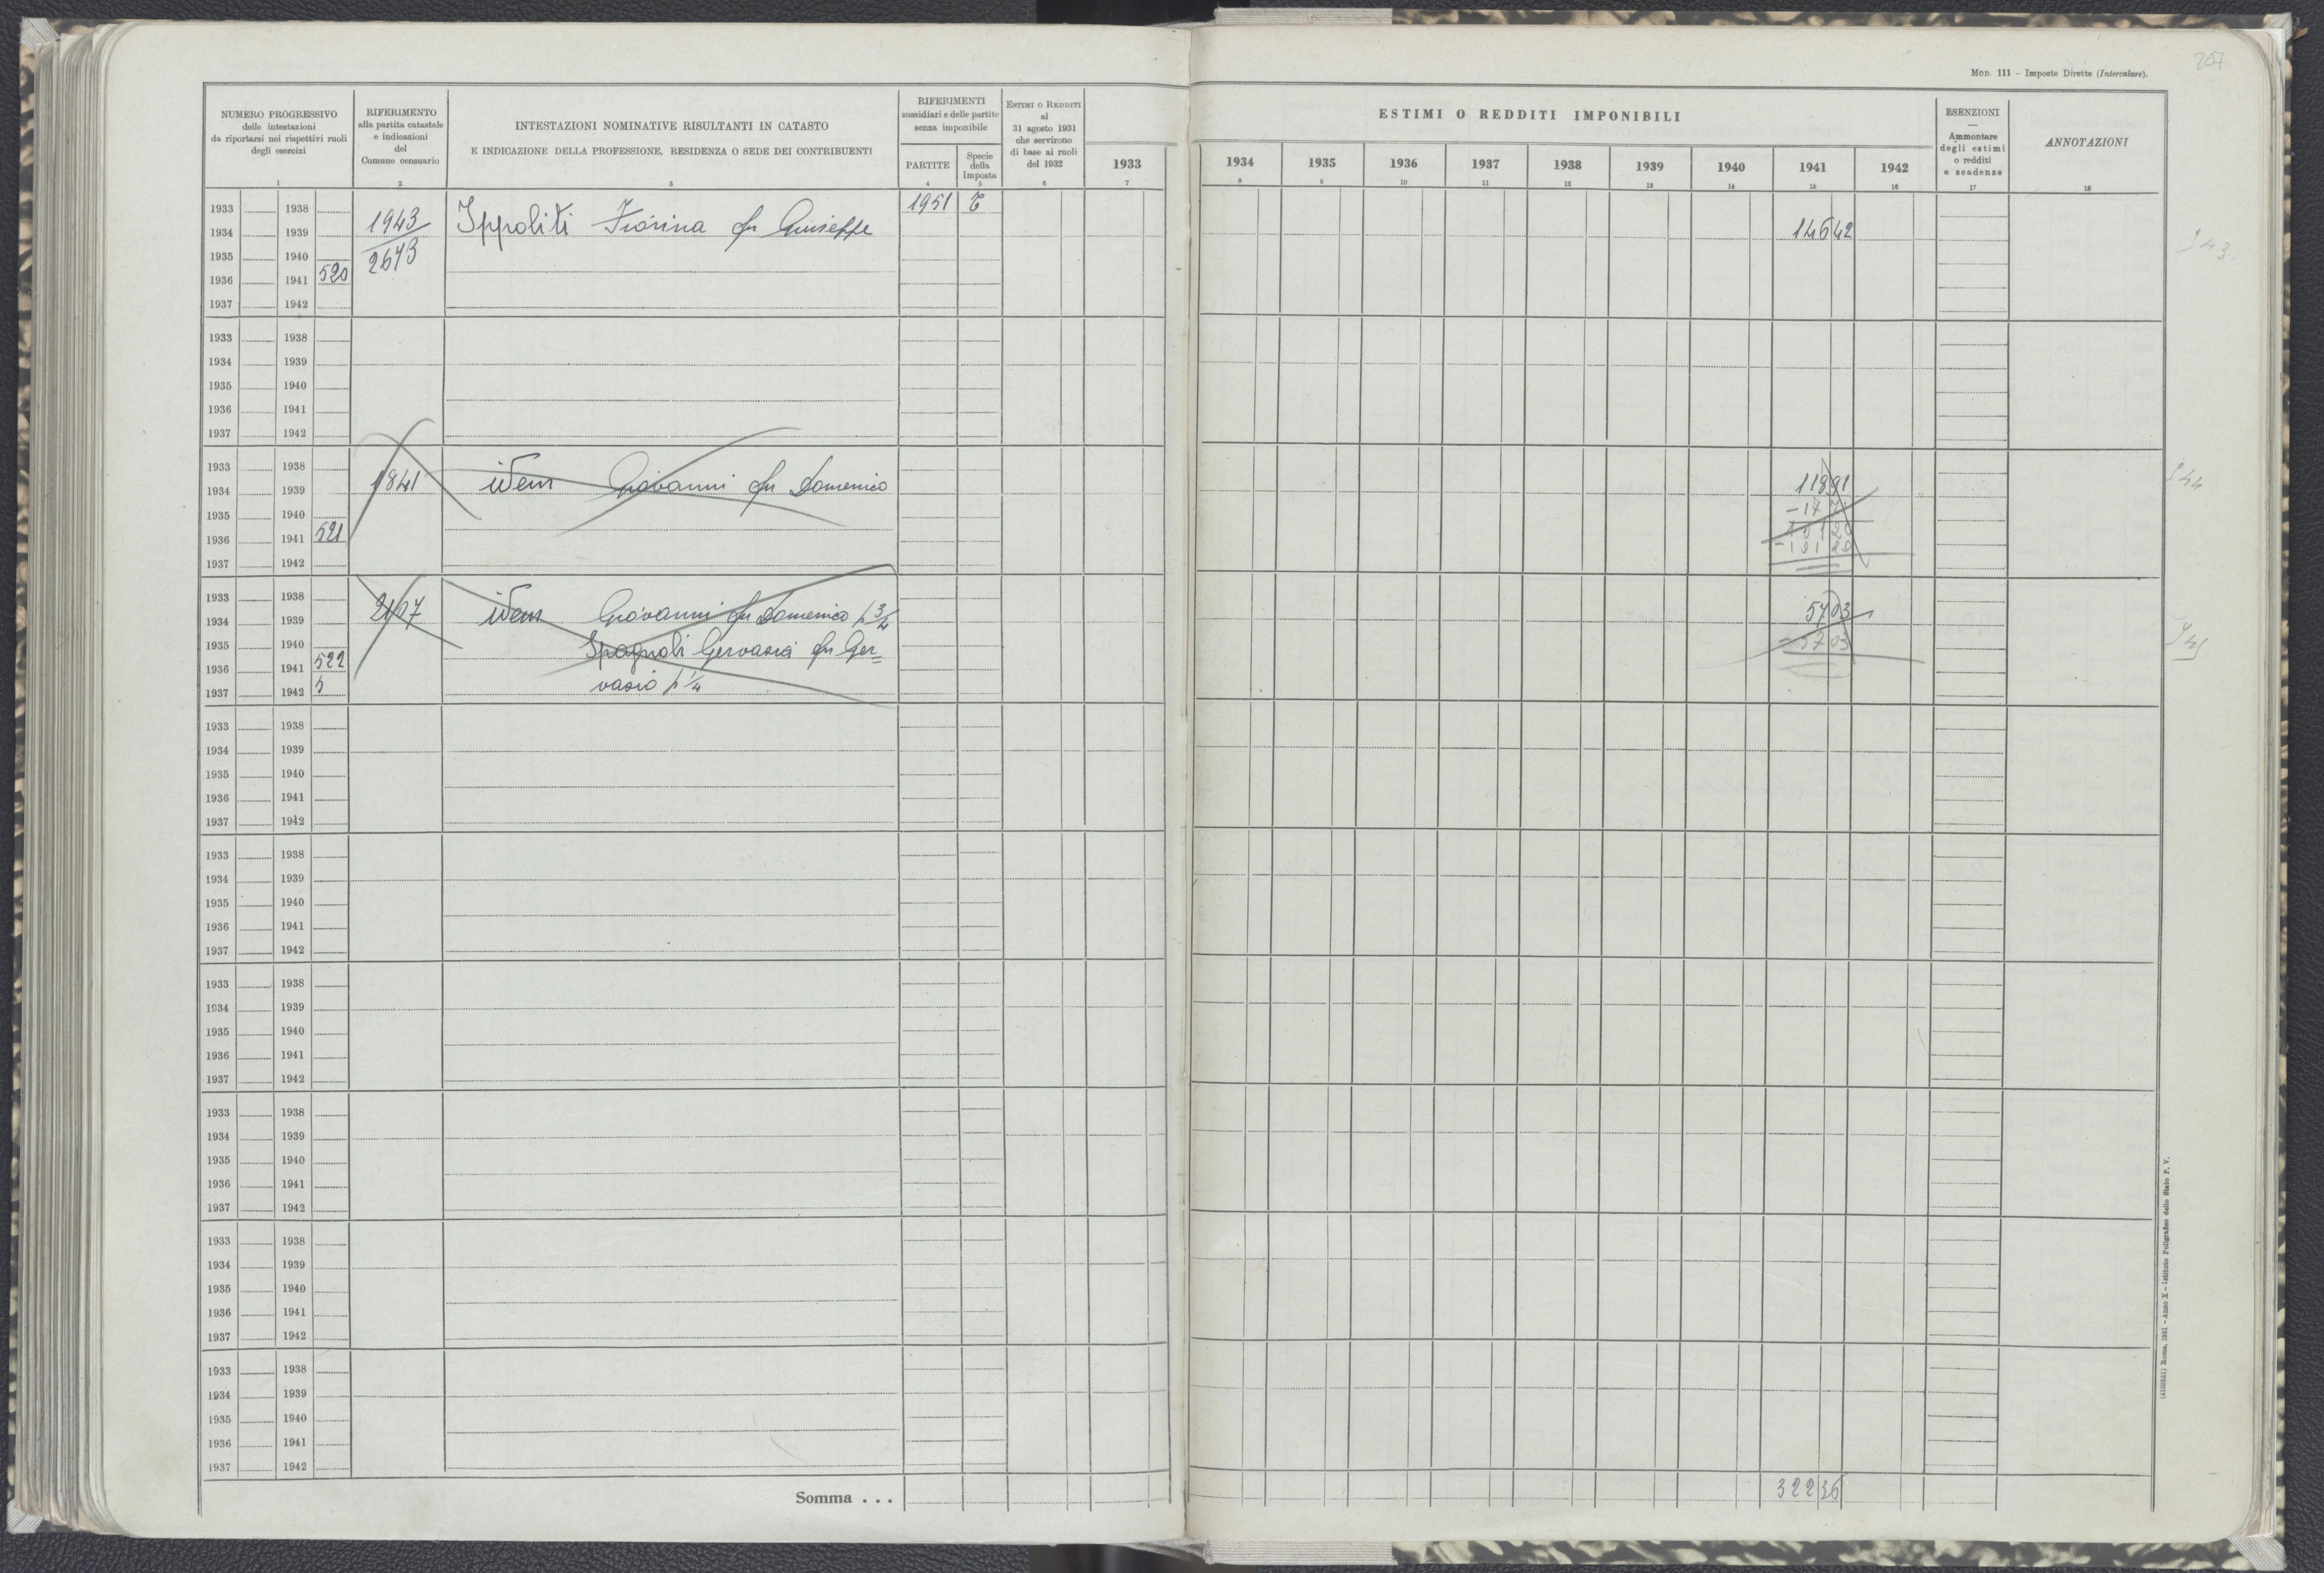 207
MOD. 111 - Imposte Dirette (Intercalare).
NUMERO PROGRESSIVO
delle intestazioni
da riportarsi nei rispettivi ruoli
degli esercizi
1
RIFERIMENTO
alla partita catastale
e indicazioni
del
Comune censuario
2
INTESTAZIONI NOMINATIVE RISULTANTI IN CATASTO
E INDICAZIONE DELLA PROFESSIONE, RESIDENZA O SEDE DEI CONTRIBUENTI
3
RIFERIMENTI
sussidiari e delle partite
senza imponibile
PARTITE
4
Specie
della
Imposta
5
ESTIMI O REDDITI
al
31 agosto 1931
che servirono
di base ai ruoli
del 1932
6
1933
7
ESTIMI O REDDITI IMPONIBILI
1934 1935 1936 1937 1938 1939 1940 1941 1942
8 9 10 11 12 13 14 15 16
ESENZIONI
—
Ammontare
degli estimi
o redditi
e scadenze
17
ANNOTAZIONI
18
1933 1938 1943 Ippoliti Fiorina fu Giuseppe 1951 T
1934 1939 2673 146 42
1935 1940
1936 1941 520
1937 1942
1933 1938
1934 1939
1935 1940
1936 1941
1937 1942
1933 1938
1934 1939 1841 idem Giovanni fu Domenico 118 91
1935 1940
1936 1941 521
1937 1942
1933 1938
1934 1939 2107 idem Giovanni fu Domenico p 3/4 57 03
1935 1940 Spagnoli Gervasia fu Ger= - 57 03
1936 1941 522
1937 1942 vasio p 1/4
1933 1938
1934 1939
1935 1940
1936 1941
1937 1942
1933 1938
1934 1939
1935 1940
1936 1941
1937 1942
1933 1938
1934 1939
1935 1940
1936 1941
1937 1942
1933 1938
1934 1939
1935 1940
1936 1941
1937 1942
1933 1938
1934 1939
1935 1940
1936 1941
1937 1942
1933 1938
1934 1939
1935 1940
1936 1941
1937 1942
Somma . . . 322 36
(4108551) Roma, 1931 - Anno X - Istituto Poligrafico dello Stato P. V.